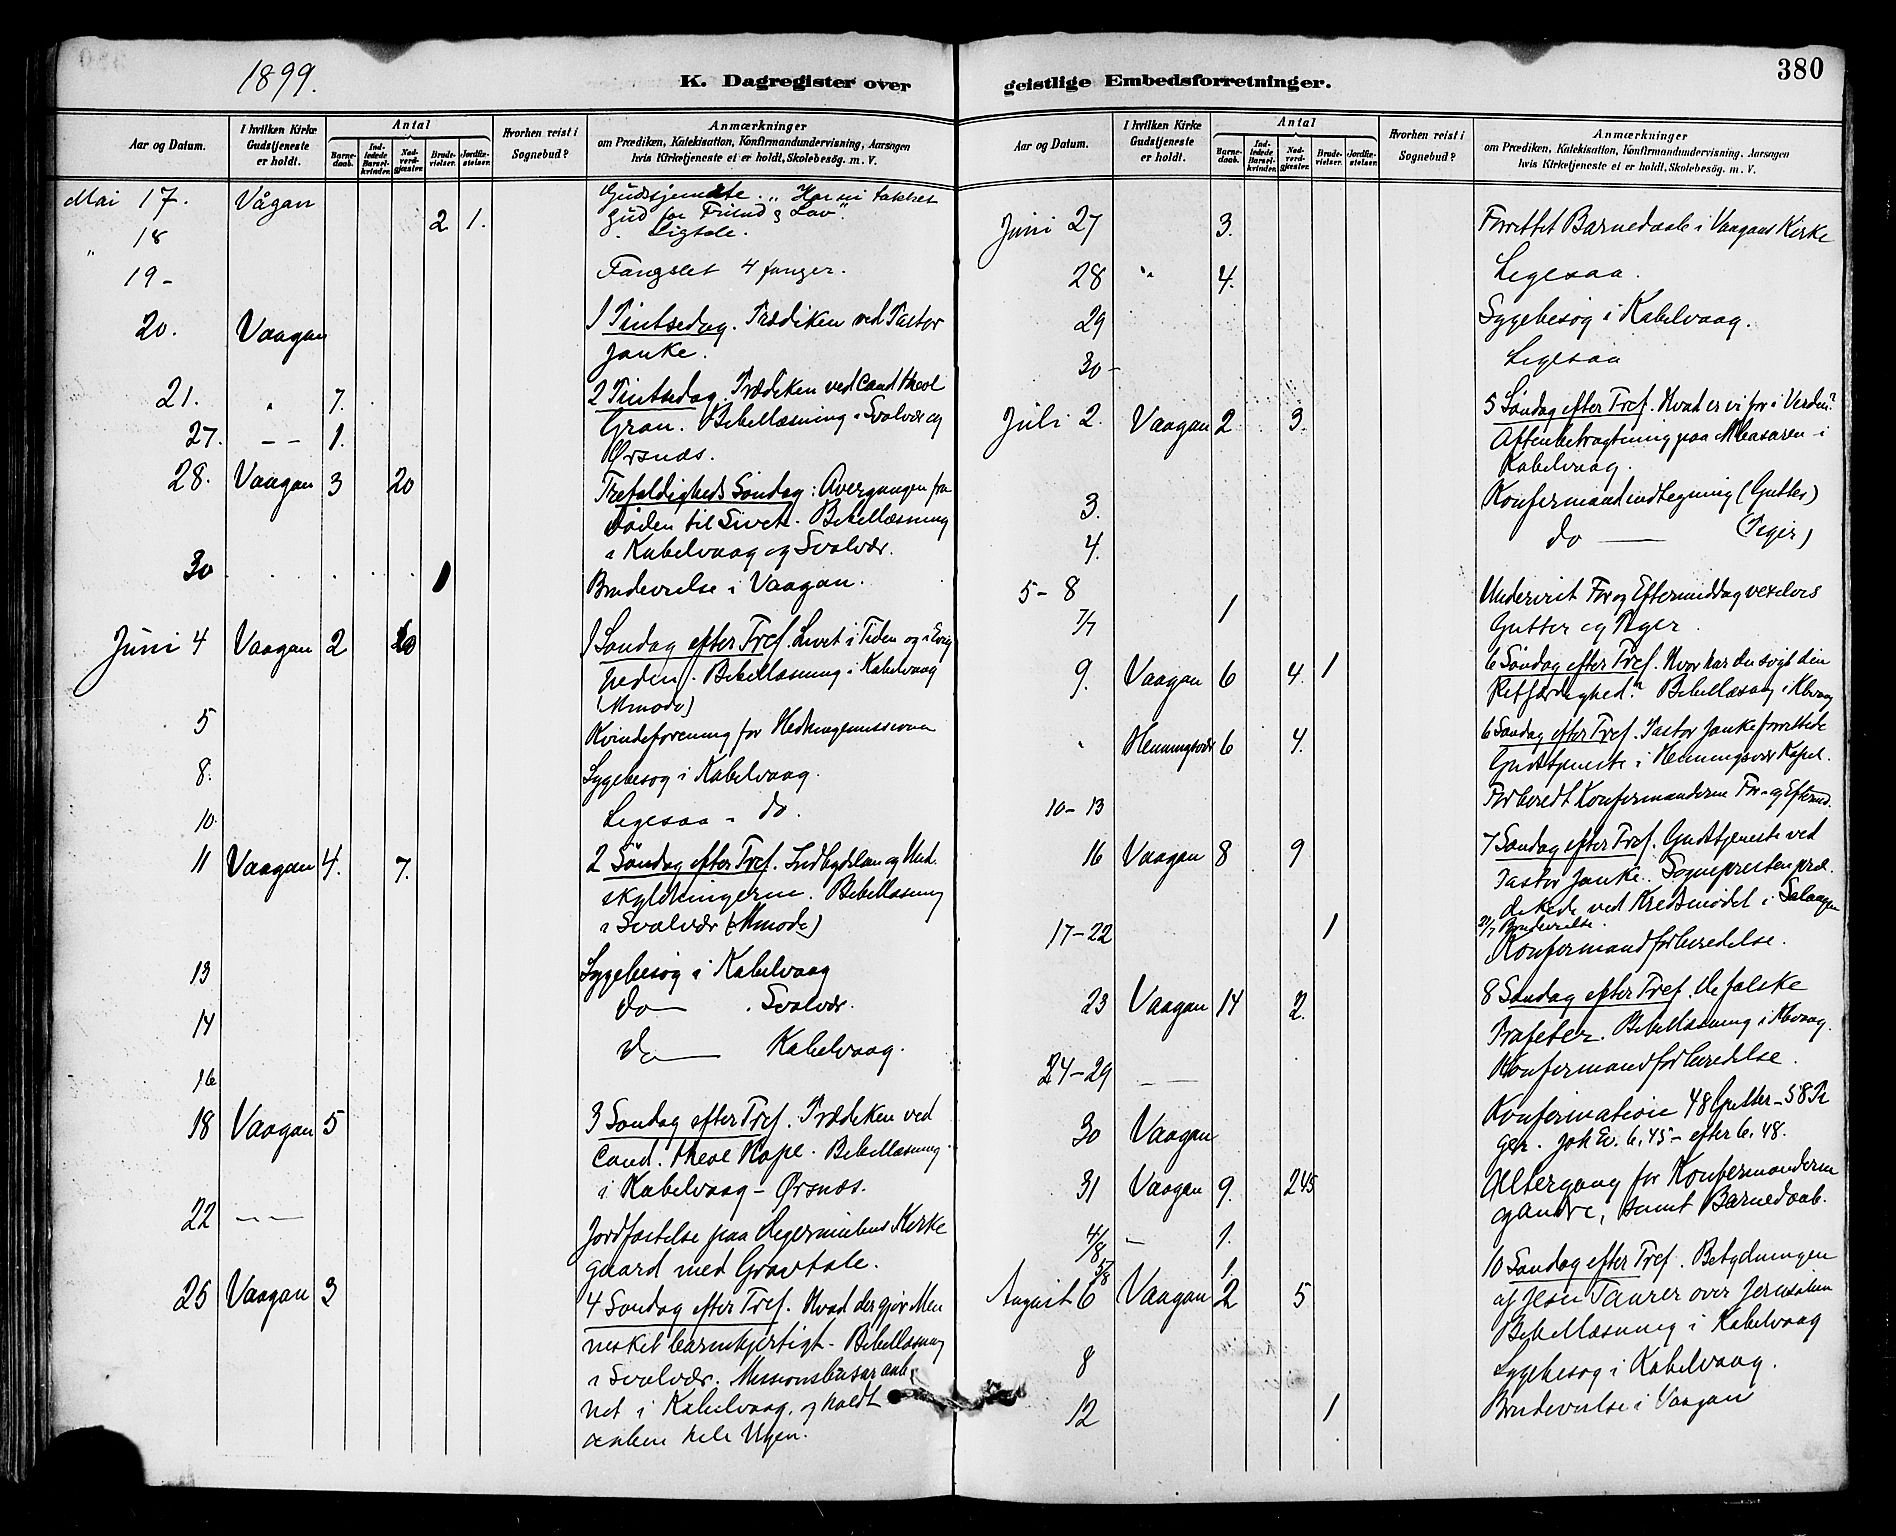 1899.
K. Dagregister over
Aar og Datum.
I hvilken Kirke Gudstjeneste er holdt.
Antal
Barnedaab.
Indledede Barselkvinder.
Nadverdgjester.
Brudevielser.
Jordfæstelser.
Hvorhen reist i Sognebud?
Anmærkninger
om Prædiken, Katekisation, Konfirmandundervisning, Aarsagen
hvis Kirketjeneste ei er holdt, Skolebesög. m. V.
Mai 17. Vågan 2 1. Gudstjeneste. "Har vi takket
Gud for Frihed & Lov".
" 18 Ligtale.
19 - Fangslet 4 fanger.
20. Vaagan 1 Pintsedag. Prædiken ved Pastor
Janke.
21. " 7. 2 Pintsedag. Prædiken ved Cand theol
Gran. Bibellæsning i Svolvær og
27. - - 1. Ørsnæs.
28. Vaagan 3 20 Trefoldigheds Søndag: Overgangen fra
Døden til Livet. Bibellæsning
i Kabelvaag og Svolvær.
30 1 Brudevielse i Vaagan.
Juni 4 Vaagan 2 1 Søndag efter Tref. Livet i Tiden og i Evig
heden. Bibellæsning i Kabelvaag
(Mmøde)
5 Kvindeforening for Hedningemissionen
8. Sygebesøg i Kabelvaag.
10. Ligesaa - do.
11 Vaagan 4. 7. 2 Søndag efter Tref. Indbydelsen og Und-
skyldningerne. Bibellæsning
i Svolvær (Mmøde)
13 Sygebesøg i Kabelvaag
14 do — Svolvær.
16 do — Kabelvaag.
18 Vaagan 5 3 Søndag efter Tref. Prædiken ved
Cand. theol Hope. Bibellæsning
i Kabelvaag - Ørsnæs.
22 - - Jordfæstelse paa Digermulens Kirke
gaard med Gravtale.
25 Vaagan 3 4 Søndag efter Tref. Hvad der gjør Men
nesket barmhjertigt - Bibellæsning
i Svolvær. Missionsbasar aab-
net i Kabelvaag, og holdt
aaben hele Ugen.
geistlige Embedsforretninger.
380
Aar og Datum.
I hvilken Kirke Gudstjeneste er holdt.
Antal
Barnedaab.
Indledede Barselkvinder.
Nadverdgjester.
Brudevielser.
Jordfæstelser.
Hvorhen reist i Sognebud?
Anmærkninger
om Prædiken, Katekisation, Konfirmandundervisning, Aarsagen
hvis Kirketjeneste ei er holdt, Skolebesög. m. V.
Juni 27 3. Forrettet Barnedaab i Vaagans Kirke
28 " 4. Ligesaa.
29 Sygebesøg i Kabelvaag.
30 - Ligesaa
Juli 2. Vaagan 2 3. 5 Søndag efter Tref. Hvad er vi for i Verden?
Aftenbetragtning paa Mbasaren i
Kabelvaag.
3. Konfirmandindtegning (Gutter)
4. do — (Piger)
5 - 8 Undervist For og Eftermiddag vexelvis
7/7 1 Gutter og Piger.
9. Vaagan 6 4. 1 6 Søndag efter Tref. Hvor har du søgt din
Retfærdighed? Bibellæsning i Kbvaag
" Henningsvær 6 4. 6 Søndag efter Tref. Pastor Janke forrettede
Gudstjeneste i Henningsvær Kapel.
10 - 13 Forberedt Konfirmanderne For- og Efterm.
16 Vaagan 8 9 7 Søndag efter Tref. Gudstjeneste ved
Pastor Janke. Sognepresten præ-
dikede ved Kredsmødet i
17 - 22 1 21/7 Brudevielse.
Konfirmandforberedelse.
23 Vaagan 14 2. 8 Søndag efter Tref. De falske
Profeter. Bibellæsning i Kbvaag.
24 - 29 - - Konfirmandforberedelse.
30 Vaagan Konfirmation 48 Gutter - 58 Pi
ger. Joh Ev. 6, 45 - efter 6, 48.
31 Vaagan 9. 245 Altergang for Konfirmanderne
og Andre, samt Barnedaab.
4/8 - 1.
5/8 1.
August 6 Vaagan 2 5 10 Søndag efter Tref. Betydningen
af Jesu Taarer over Jerusalem
Bibellæsning i Kabelvaag
8 Sygebesøg i Kabelvaag.
12 1 Brudevielse i Vaagan